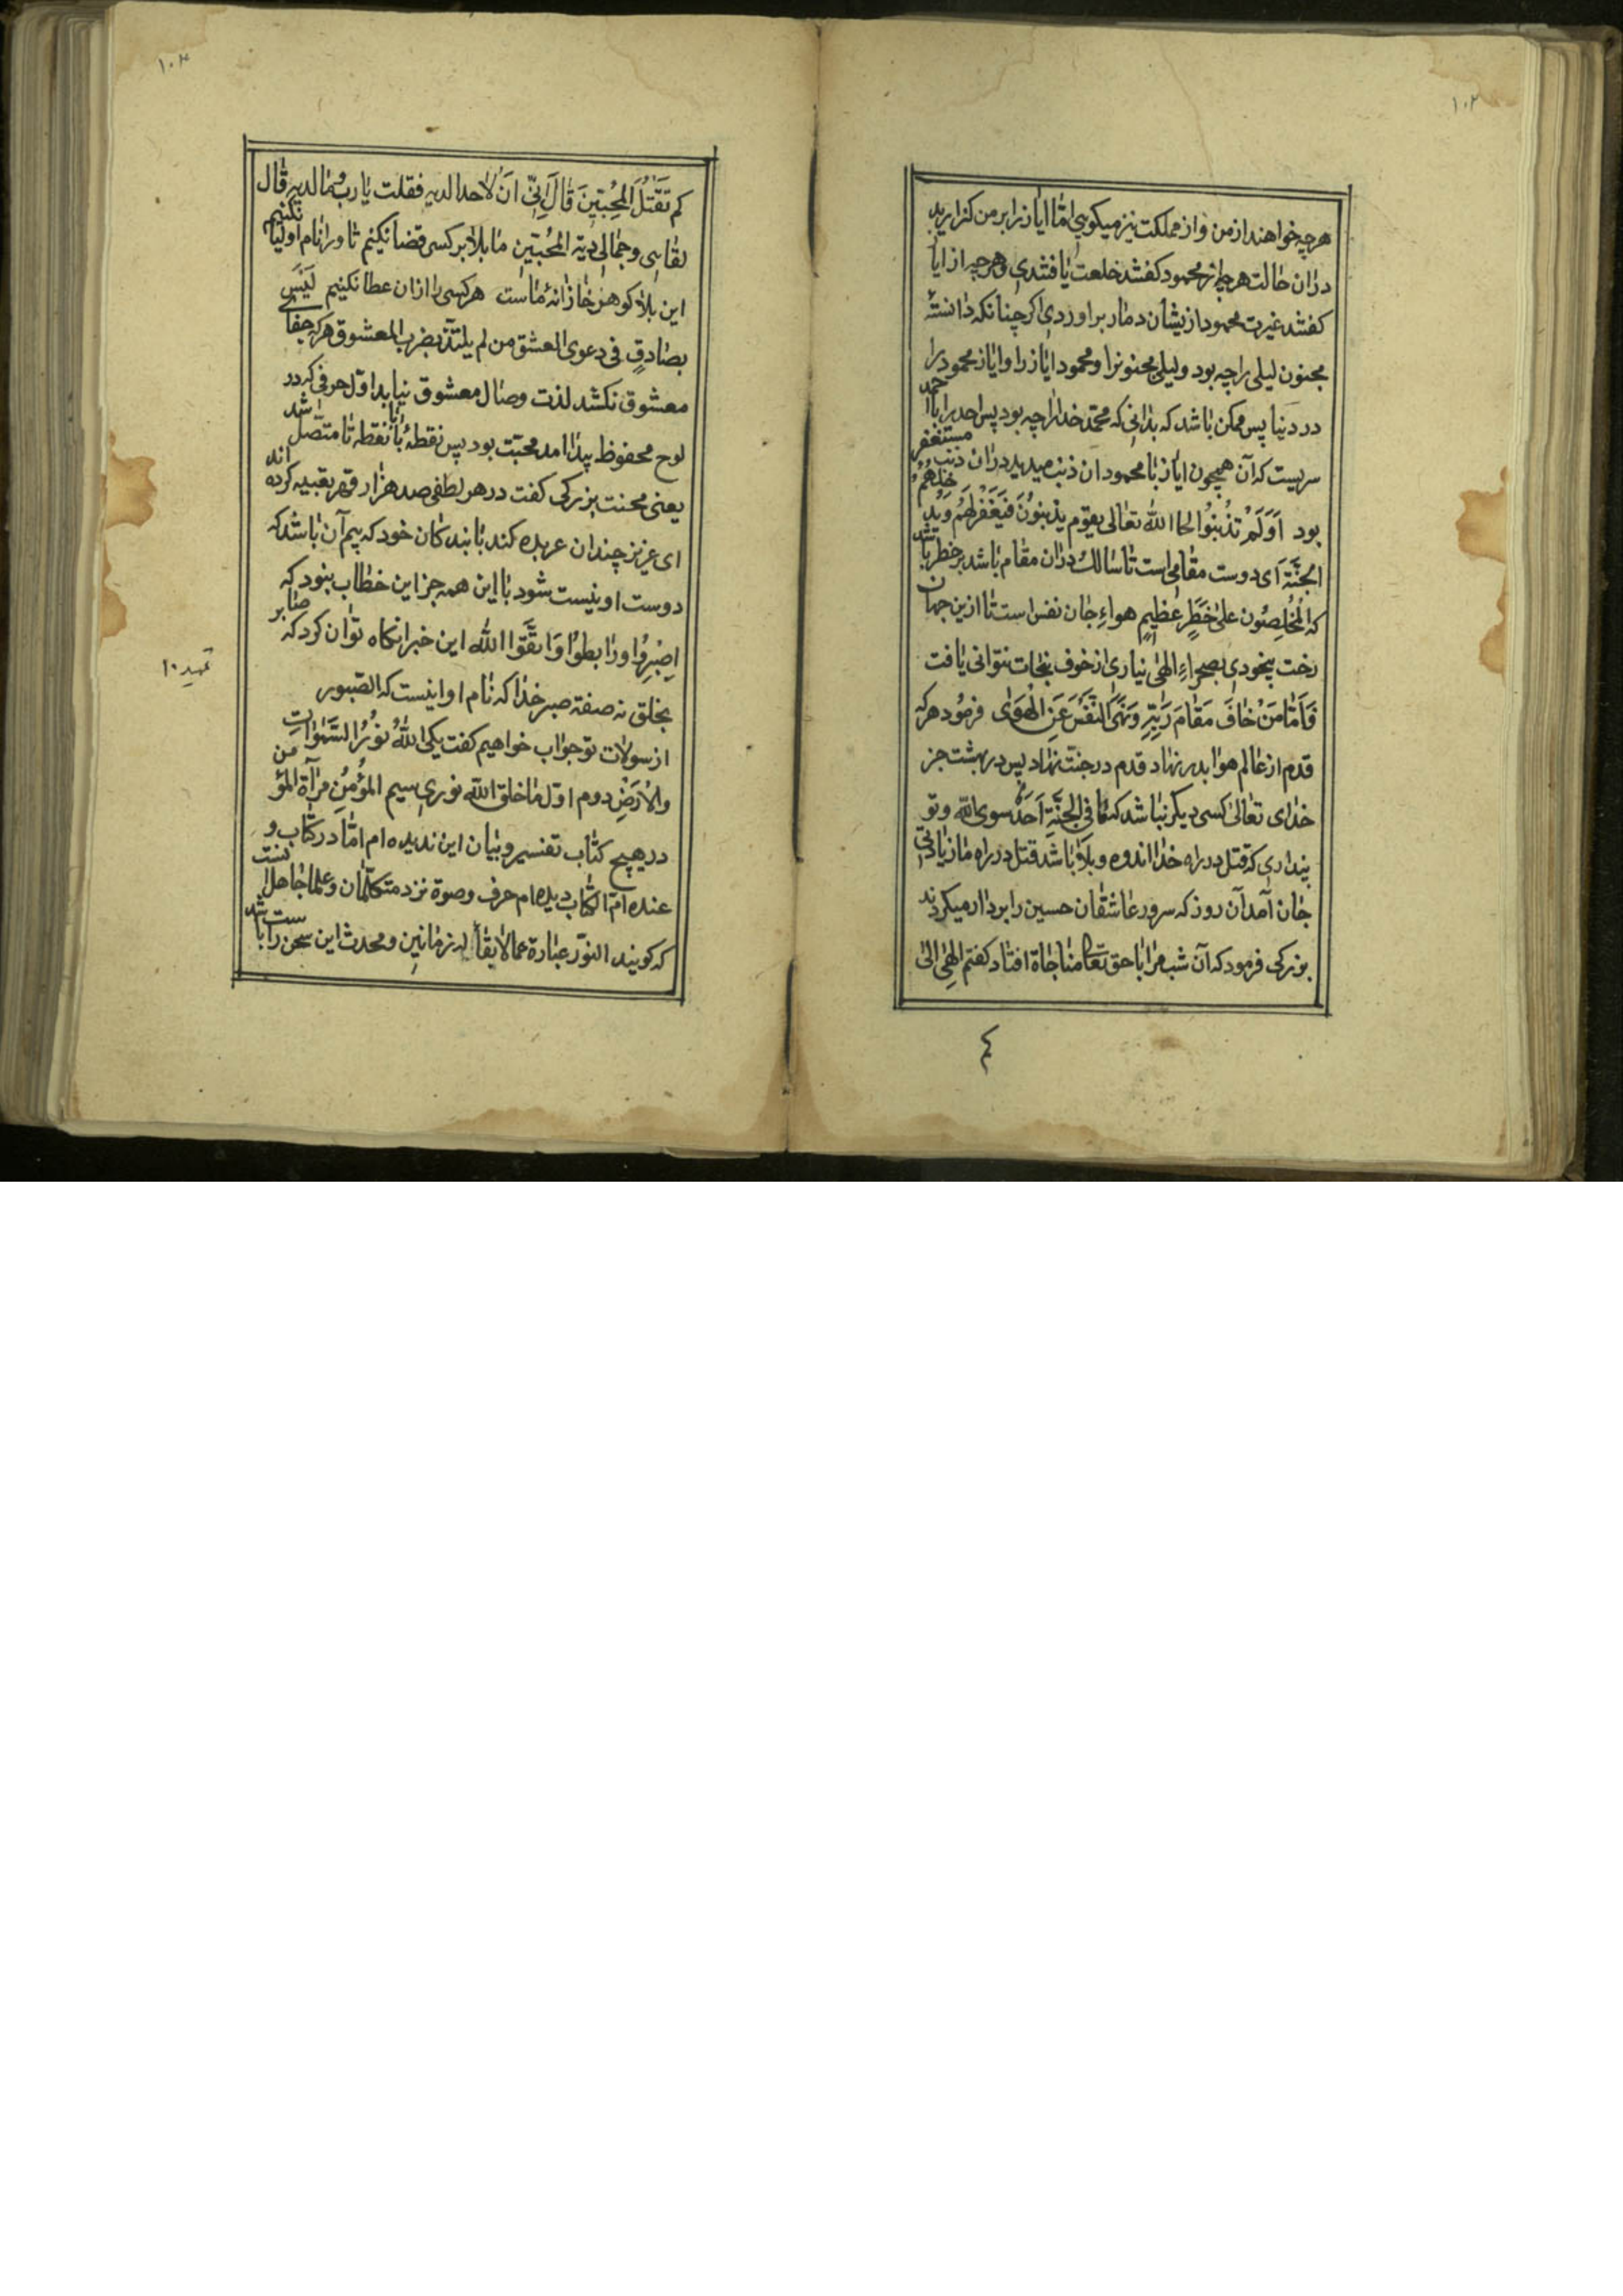 ۱۰۲
هرچه خواهند از من و از مملکت نیز میکوبی امّا ایاز را بر من کذارید
دران حالت هرچه از محمود کفتند خلعت یافتندی و هرچه از ایا
کفتند غیرت محمود ازیشان دمار براوردی اکر چنانکه دانستهٔ
مجنون لیلی را چه بود و لیلی مجنونرا و محمود ایاز را و ایاز محمود را
در دنیا پس ممکن باشد که بدانی که محمّد خدا را چه بود پس احد را با احمد
سریست که آن همچون ایاز با محمود ان ذنب میدید دران ذنب مستغفر
بود اَوَلَمْ تذْنبُوا لجا الله تعالی بقوم یذنبُونَ فَیَغْفِرلهُم وَیُدخلهُمُ
الجنَّة آی دوست مقامی است تا سالک دران مقام باشد بر خطر باشد
که المُخلِصُون علیٰ خَطَرٍ عَظیمٍ هواءِ جان نفس است تا ازین جهان
رخت بیخودی بصحراءِ الهٰی نیاری از خوف نجات نتوانی یافت
فَاَمّٰا مَنْ خٰافَ مَقٰامَ رَبِّهِ وَنَهَی النَفْسَ عَنِ الْهَوَیٰ فرمُود هرکه
قدم از عالم هوا بدر نهاد قدم در جنّت نهاد پس در بهشت جز
خدٰای تعٰالیٰ کسی دیکر نباشد کمٰا فی الجنَّةِ اَحَدٌ سوی الله و تو
پنداری که قتل در راه خدا اندوه و بلا باشد قتل در راه ما زیادتی
جان آمد آن روز که سرور عاشقان حسین را بردار میکردند
بزرکی فرمود که آن شب مرا با حق تعٰا مناجاة افتاد کفتم الهٰی الیٰ
کم
۱۰۳
کم تَقْتُلَ المُحِبّینَ قالَ اِنّی اَنْ لا احد الدیه فقلت یا رب و ما الدیه قال
لقاءی و جمالی دیة المُحبّین ما بلا بر کسی قضا نکنیم تا ورا نام اولیا نکنیم
این بلا کوهر خازانهٔ ماست هر کسی را ازان عطا نکنیم لَیْسَ
بصٰادقٍ فی دعوی العشق من لم یلتذّ بضرب المعشوق هرکه جفاے
معشوق نکشد لذت وصال معشوق نیابد اوّل حرفی که در
لوح محفوظ پیدا امد محبّت بود پس نقطهٔ با نقطه تا متّصل شد
یعنی محنت بزرکی کفت در هر لطفی صد هزار قهر تعبیه کرده اند
ای عزیز چندان عربده کند با بندکان خود که بیم آن باشد که
دوست او نیست شود با این همه جز این خطاب نبود که
اِصْبِرُوا و رٰابطُوا وَاتَّقُوا الله این خبر انکاه توان کرد که صابر
بخلق نه صفة صبر خدا که نام او اینست که الصّبور
از سولات تو جواب خواهیم کفت یکی الله نُورُ السَّمٰوٰات
والاَرْضِ دوم اوّل ما خلق الله نوری سیم المؤمنُ مرآة المؤمن
در هیچ کتاب تفسیر و بیان این ندیده ام امّا در کتاب و
عنده ام الکتاب دیده ام حرف و صوة نزد متکلّمان و علما جاهل بنت
که کویند النوّر عبارة عما لا یقا له زمانین و محدث این سخن راست باشد
تمهید ۱۰